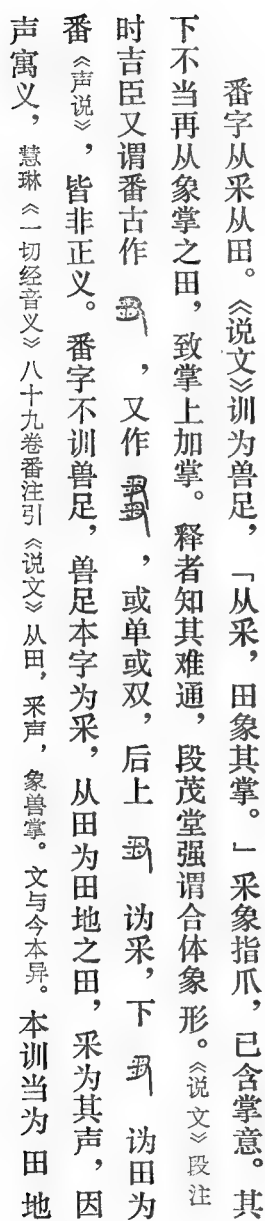 番字从采从田。《说文》训为兽足，「从采，田象其掌。」采象指爪，已含掌意。其
下不当再从象掌之田，致掌上加掌。释者知其难通，段茂堂强谓合体象形。《说文》段注
时吉臣又谓番古作，又作，或单或双，后上讹采，下讹田为
番《声说》，皆非正义。番字不训兽足，兽足本字为采，从田为田地之田，采为其声，因
声寓义，慧琳《一切经音义》八十九卷番注引《说文》从田，采声，象兽掌。文与今本异。本训当为田地